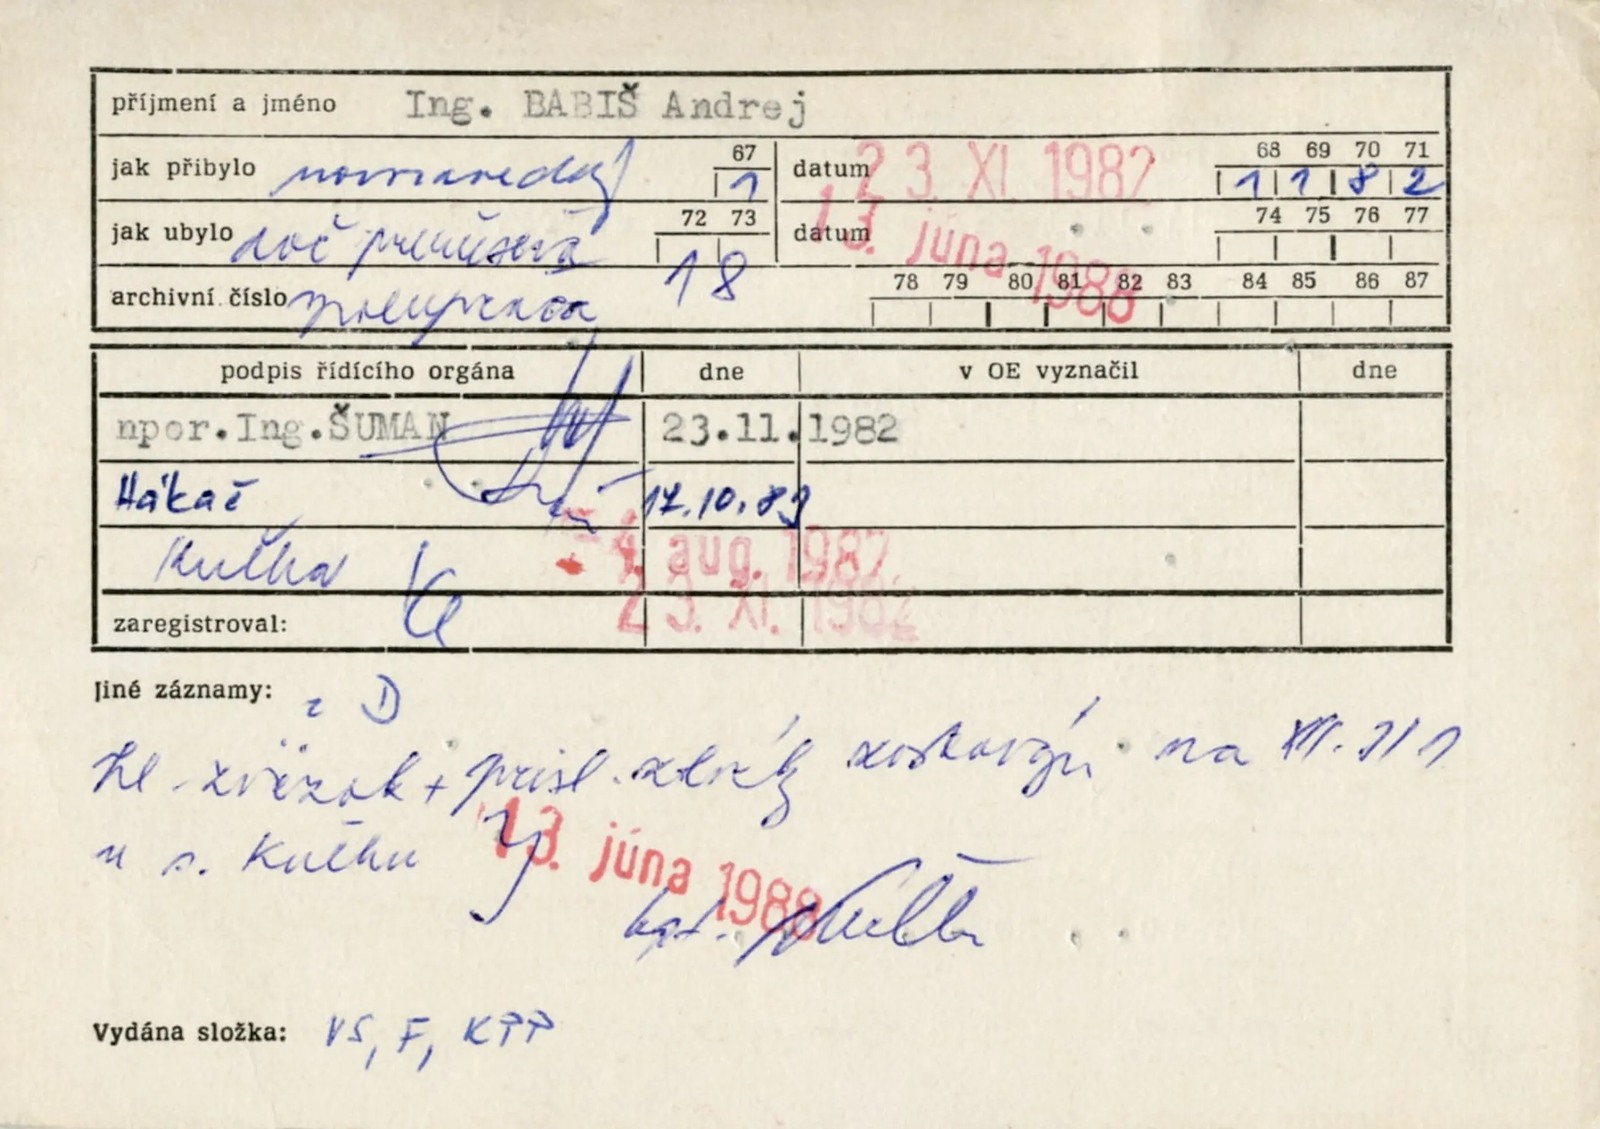 příjmení a jméno Ing. BABIŠ Andrej
jak přibylo novozavedený 67 1 datum 23. XI. 1982 68 69 70 71 1 1 8 2
jak ubylo doč prerušená 72 73 18 datum 13. júna 1988 74 75 76 77
archivní číslo spolupráca 78 79 80 81 82 83 84 85 86 87
podpis řídícího orgána dne v OE vyznačil dne
npor. Ing. ŠUMAN 23.11.1982
Hákač 17.10.83
Kulha - 4. aug. 1987
zaregistroval: 23. XI. 1982
Jiné záznamy: z D
zväzok + na XII.
u s. Kulhu
13. júna 1988
kpt. Kulha
Vydána složka: VS, F, KPP